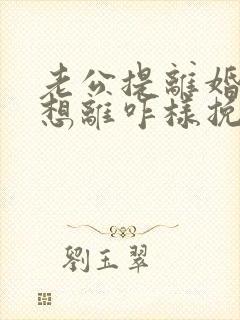 老公提離婚
想離咋樣挽
劉玉翠